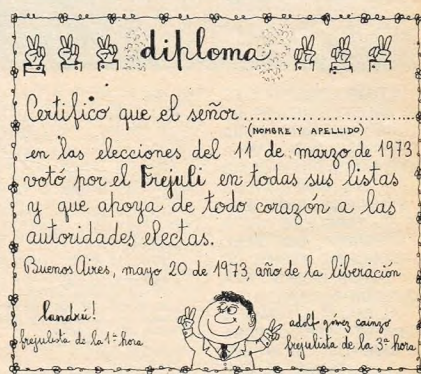 diploma
Certifico que el señor....................
(NOMBRE Y APELLIDO)
en las elecciones del 11 de marzo de 1973
votó por el Frejuli en todas sus listas
y que apoya de todo corazón a las
autoridades electas.
Buenos Aires, mayo 20 de 1973, año de la liberación
landrú!
frejulista de la 1ª hora
adolf gómez cainzo
frejulista de la 3ª hora